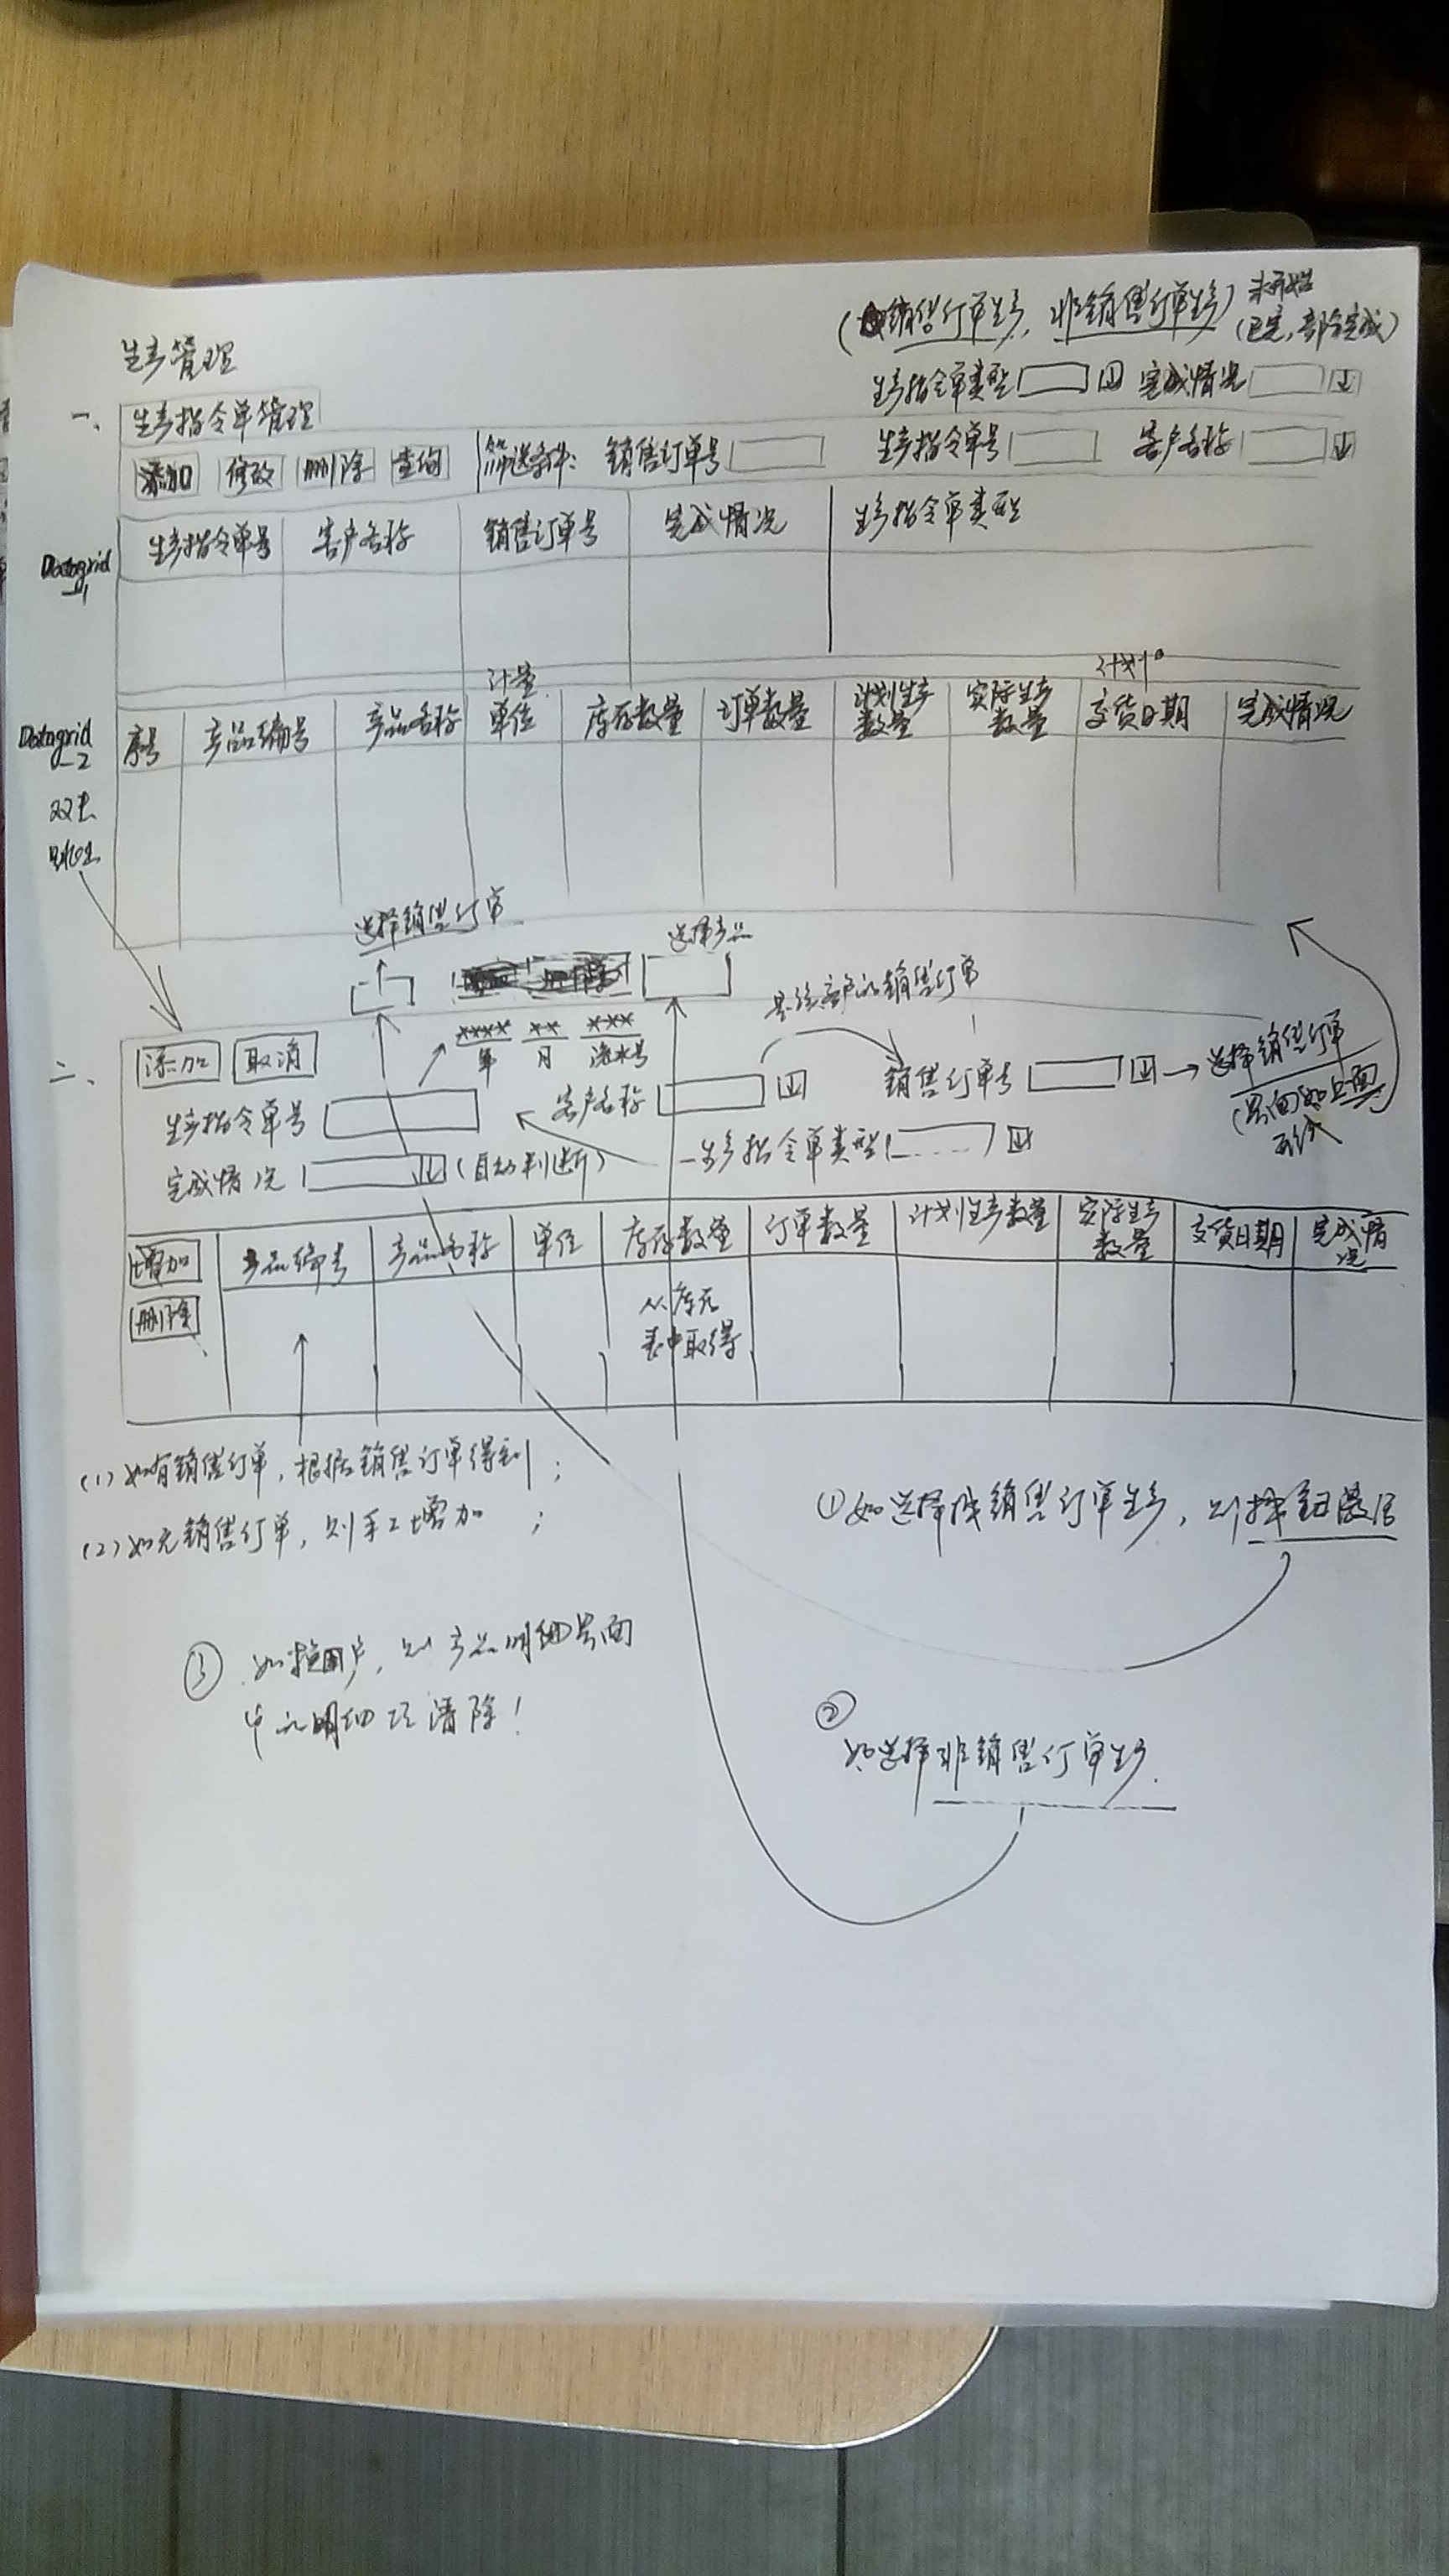 (销售订单生产, 非销售订单生产) 未开始
(已完, 部分完成)
生产管理
生产指令单类型 完成情况
一、 生产指令单管理
添加 修改 删除 查询 筛选条件: 销售订单号 生产指令单号 客户名称
Datagrid
-1
生产指令单号 客户名称 销售订单号 完成情况 生产指令单类型
计量 计划
Datagrid
-2
序号 产品编号 产品名称 单位 库存数量 订单数量 计划生产数量 实际生产数量 交货日期 完成情况
双击
选择销售订单 选择产品
是该客户的销售订单
**** ** ***
年 月 流水号
二、 添加 取消
生产指令单号 客户名称 销售订单号 选择销售订单
(界面如上面
完成情况 (自动判断) 生产指令单类型
增加 产品编号 产品名称 单位 库存数量 订单数量 计划生产数量 实际生产数量 交货日期 完成情况
删除
从库存
表中取得
(1) 如有销售订单, 根据销售订单得到;
(2) 如无销售订单, 则手工增加;
① 如选择按销售订单生产, 则按钮激活
③ 如换用户, 则产品明细界面
中的明细项清除!
②
如选择非销售订单生产.